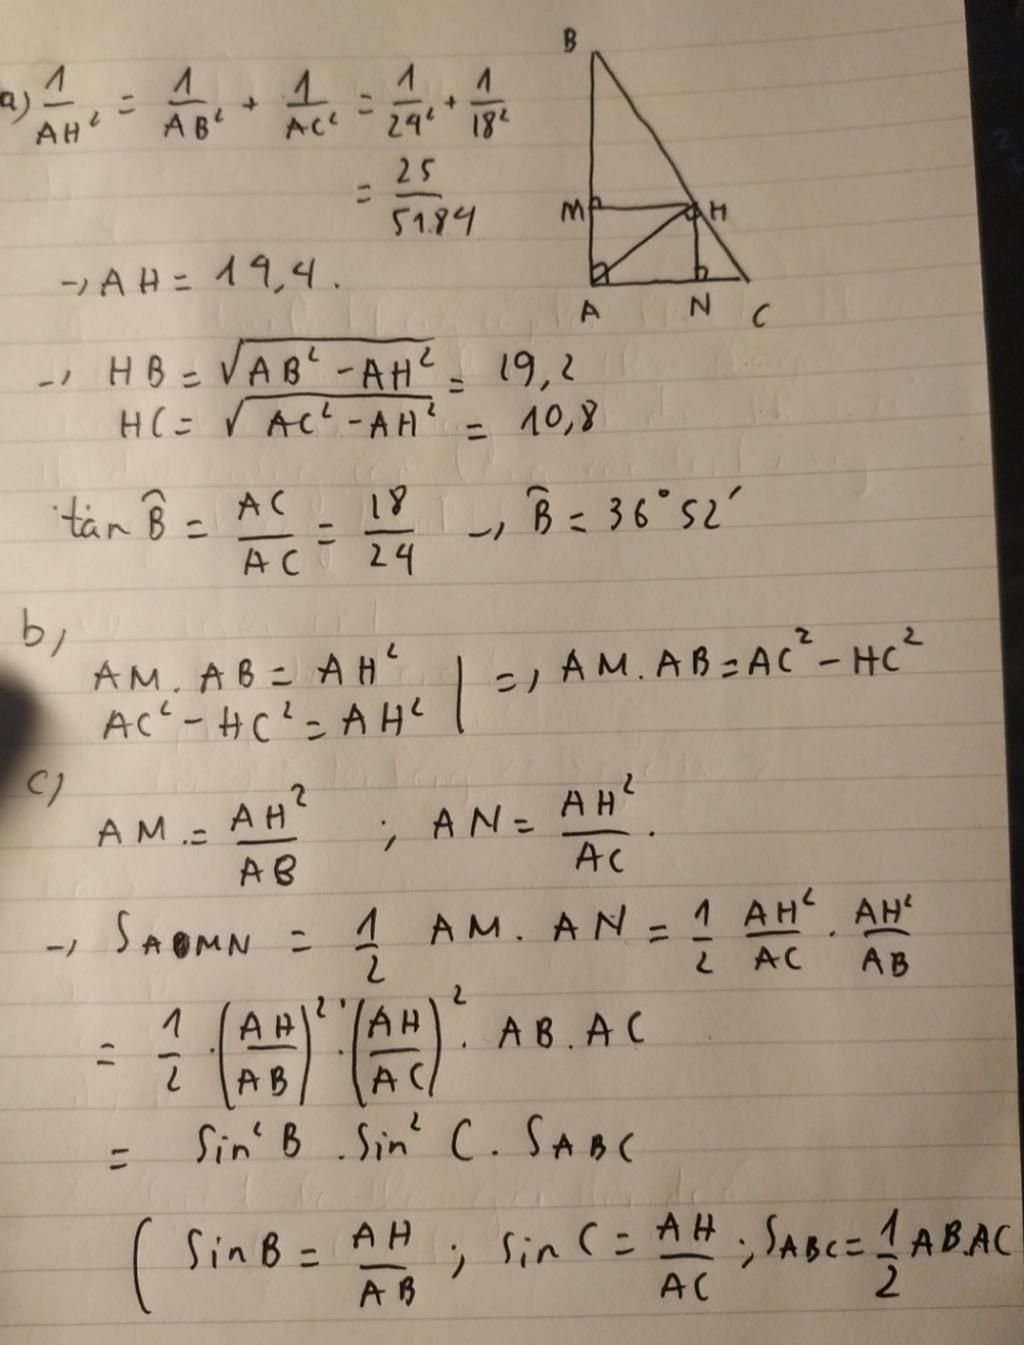 a) 1/AH² = 1/AB² + 1/AC² = 1/24² + 1/18²
= 25/5184
→ AH = 14,4.
→ HB = √(AB² - AH²) = 19,2
HC = √(AC² - AH²) = 10,8
tan B̂ = AC/AC = 18/24 → B̂ = 36°52′
B
M
H
A
N
C
b,
AM. AB = AH² | =, AM. AB = AC² - HC²
AC² - HC² = AH²
c)
AM = AH²/AB ; AN = AH²/AC.
→ SAMN = 1/2 AM. AN = 1/2 AH²/AC . AH²/AB
= 1/2 . (AH/AB)² . (AH/AC)² . AB. AC
= Sin² B . Sin² C. SABC
( SinB = AH/AB ; sin C = AH/AC ; SABC = 1/2 AB.AC